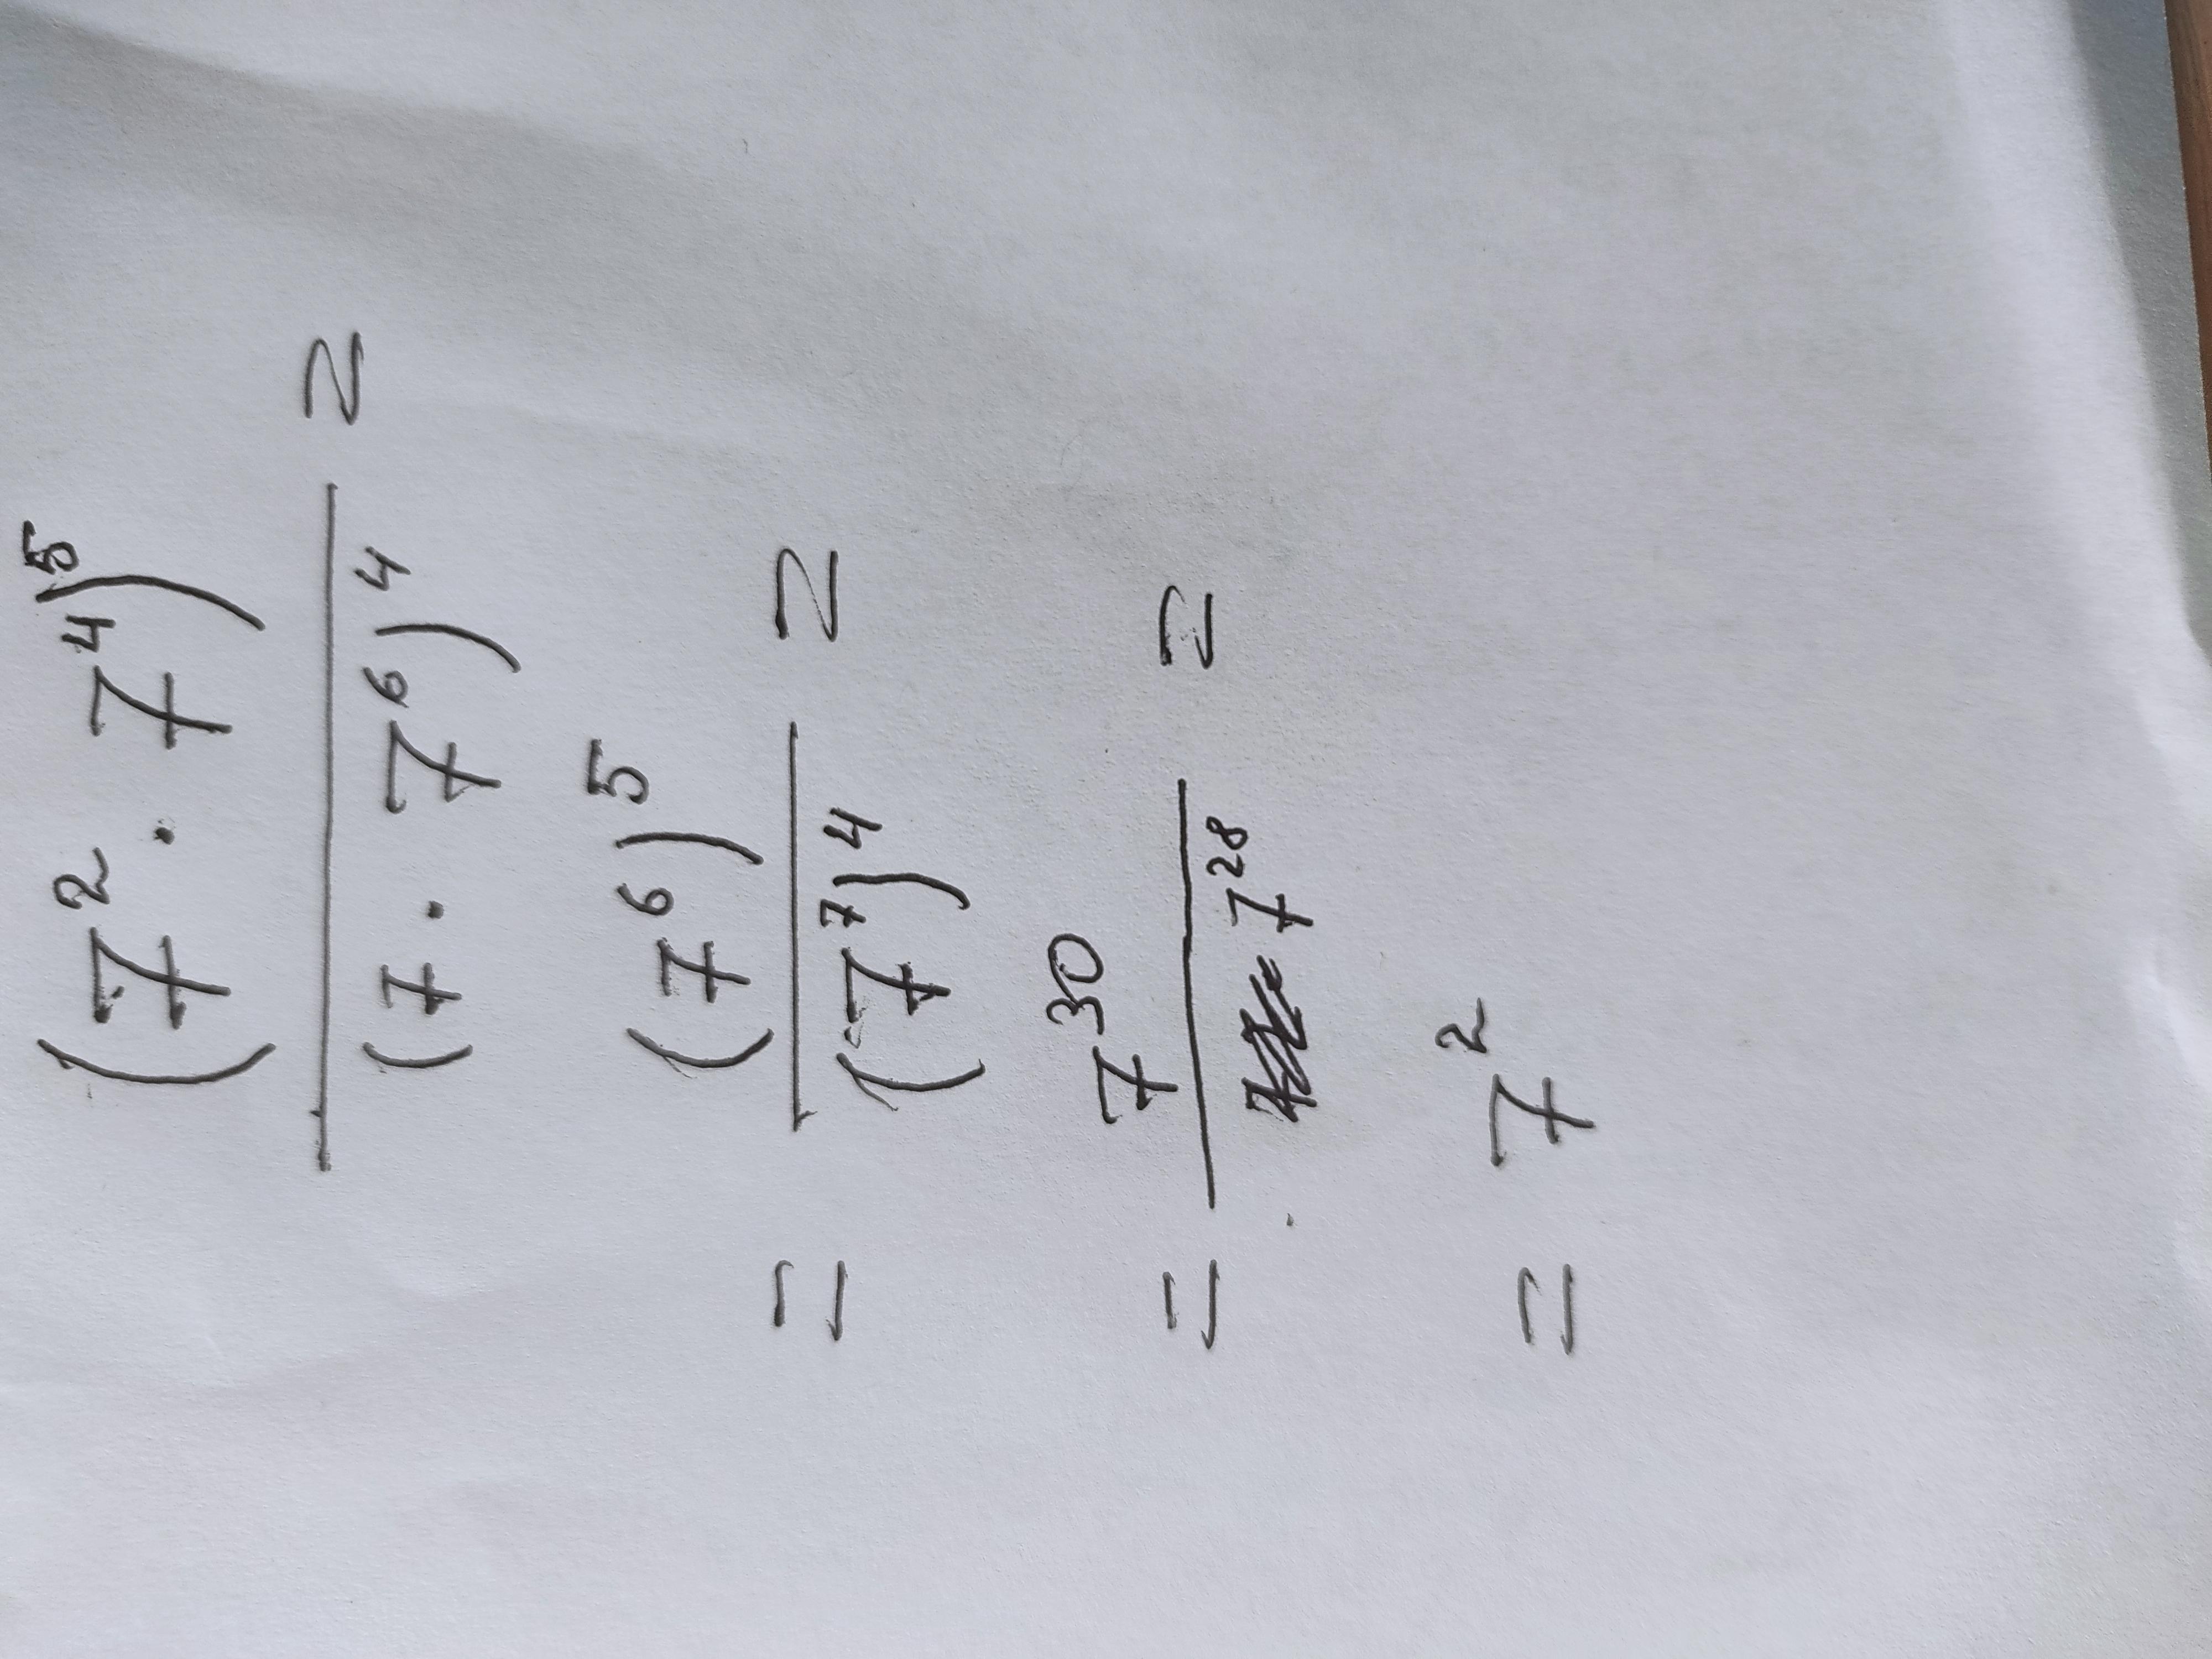 (7² · 7⁴)⁵
――― =
(7 · 7⁶)⁴
(7⁶)⁵
= ――― =
(7⁷)⁴
7³⁰
= ――― =
7²⁸
= 7²